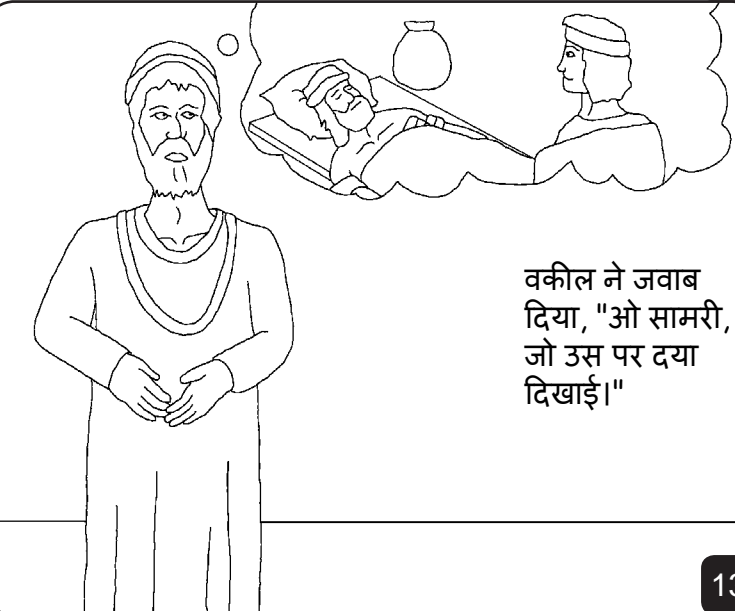 वकील ने जवाब
दिया, "ओ सामरी,
जो उस पर दया
दिखाई।"
13